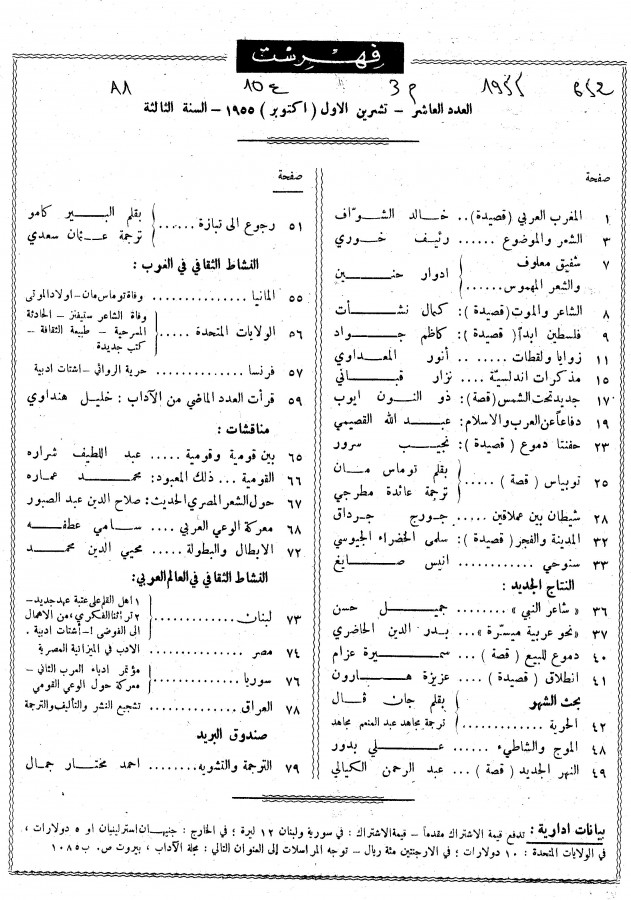 فهرست
العدد العاشر - تشرين الاول ( اكتوبر ) ١٩٥٥ - السنة الثالثة
صفحة
١ المغرب العربي ( قصيدة ) .. خالد الشوّاف
٣ الشعر والموضوع ...... رئيف خوري
٧ شفيق معلوف والشعر المهموس ...... ادوار حنين
٨ الشاعر والموت ( قصيدة ) : كمال نشأت
٩ فلسطين ابداً ( قصيدة ) : كاظم جواد
١١ زوايا ولقطات ...... أنور المعداوي
١٥ مذكرات اندلسيّة .... نزار قباني
١٧ جديد تحت الشمس ( قصة ) : ذو النون ايوب
١٩ دفاعاً عن العرب والاسلام : عبد الله القصيمي
٢٣ حفنتا دموع ( قصيدة ) : نجيب سرور
٢٥ توبياس ( قصة ) بقلم توماس مان
ترجمة عائدة مطرجي
٢٨ شيطان بين عملاقين ..... جورج جرداق
٣٢ المدينة والفجر ( قصيدة ) : سلمى الخضراء الجيوسي
٣٣ سنوحي ............ انيس صايغ
النتاج الجديد :
٣٦ « شاعر النبي » ........ جميل حسن
٣٧ « نحو عربية ميسّرة » ... بدر الدين الحاضري
٤٠ دموع للبيع ( قصة ) .... سميرة عزام
٤١ انطلاق ( قصيدة ) .... عزيزة هارون
بحث الشهر
٤٢ الحرية ............ بقلم جان ڤال
ترجمة مجاهد عبد المنعم مجاهد
٤٨ الموج والشاطيء ...... علي بدور
٤٩ النهر الجديد ( قصة ) .. عبد الرحمن الكيالي
صفحة
٥١ رجوع الى تيبازة ...... بقلم البير كامو
ترجمة عثمان سعدي
النشاط الثقافي في الغرب :
٥٥ المانيا ............. وفاة توماس مان - اولاد الموتى
٥٦ الولايات المتحدة ..... وفاة الشاعر ستيفنز - الحادثة
المسرحية - طبيعة الثقافة -
كتب جديدة
٥٧ فرنسا ........ حرية الروائي - اشتات ادبية
٥٩ قرأت العدد الماضي من الآداب : خليل هنداوي
مناقشات :
٦٥ بين قومية وقومية ..... عبد اللطيف شراره
٦٦ القومية ... ذلك المعبود : محمد عماره
٦٧ حول الشعر المصري الحديث : صلاح الدين عبد الصبور
٦٨ معركة الوعي العربي .... سامي عطفه
٧٢ الابطال والبطولة ..... محيي الدين محمد
النشاط الثقافي في العالم العربي :
٧٣ لبنان ............ ١ اهل القلم على عتبة عهد جديد -
٢ تراثنا الفكري، من الاهمال
الى الفوضى ! - أشتات ادبية .
٧٤ مصر ............ الادب في الميزانية المصرية
٧٦ سوريا ............ مؤتمر ادباء العرب الثاني -
معركة حول الوعي القومي
٧٨ العراق ........ تشجيع النشر والتأليف والترجمة
صندوق البريد
٧٩ الترجمة والتشويه ........ احمد مختار جمال
بيانات ادارية : تدفع قيمة الاشتراك مقدماً - قيمة الاشتراك : في سورية ولبنان ١٢ ليرة ؛ في الخارج : جنيهان استرلينيان او ٥ دولارات ،
في الولايات المتحدة : ١٠ دولارات ؛ في الارجنتين مئة ريال - توجه المراسلات إلى العنوان التالي : مجلة الآداب ، بيروت ص. ب ١٠٨٥